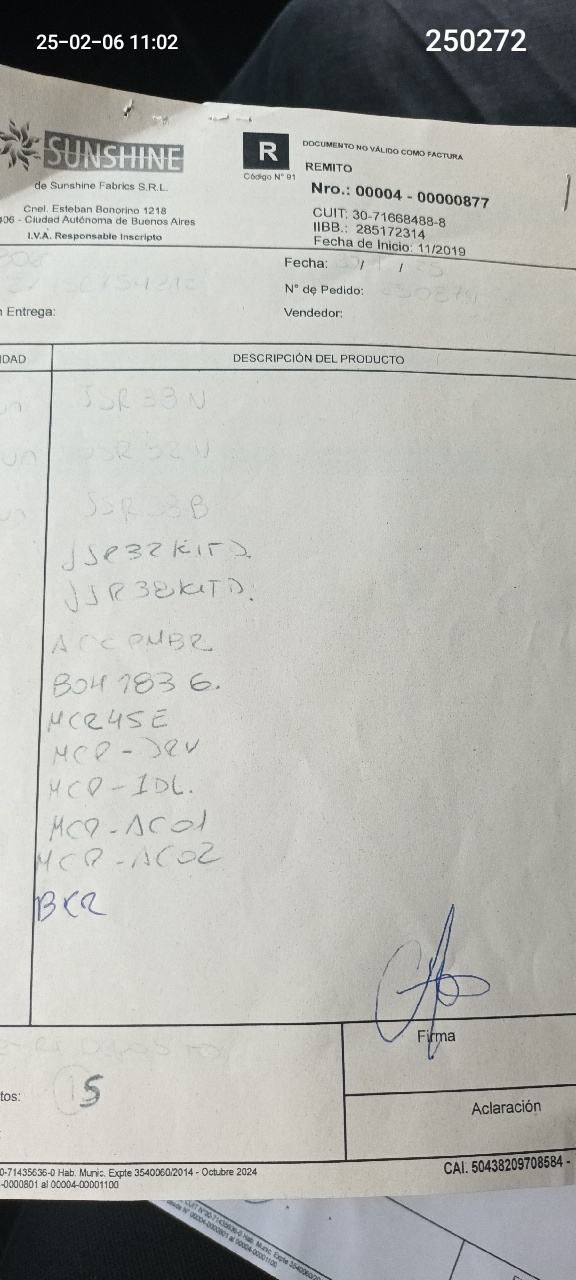 25-02-06 11:02
250272
SUNSHINE
de Sunshine Fabrics S.R.L.
Cnel. Esteban Bonorino 1218
406 - Ciudad Autónoma de Buenos Aires
I.V.A. Responsable Inscripto
R
Código N° 91
DOCUMENTO NO VÁLIDO COMO FACTURA
REMITO
Nro.: 00004 - 00000877
CUIT: 30-71668488-8
IIBB.: 285172314
Fecha de Inicio: 11/2019
Fecha: / /
N° de Pedido:
Vendedor:
Entrega:
IDAD
DESCRIPCIÓN DEL PRODUCTO
un JSR 38 N
un JSR 32 N
un JSR 38 B
JSR32KITD.
JSR38KITD.
ACCPMBR
BO4783 6.
MCR45E
MCR-DRV
MCR-IDL.
MCR-AC01
MCR-AC02
BKR
Firma
tos: 15
Aclaración
0-71435636-0 Hab. Munic. Expte 3540060/2014 - Octubre 2024
-0000801 al 00004-00001100
CAI. 50438209708584 -